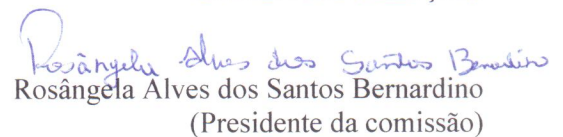 Rosângela Alves dos Santos Bernardino
Rosângela Alves dos Santos Bernardino
(Presidente da comissão)